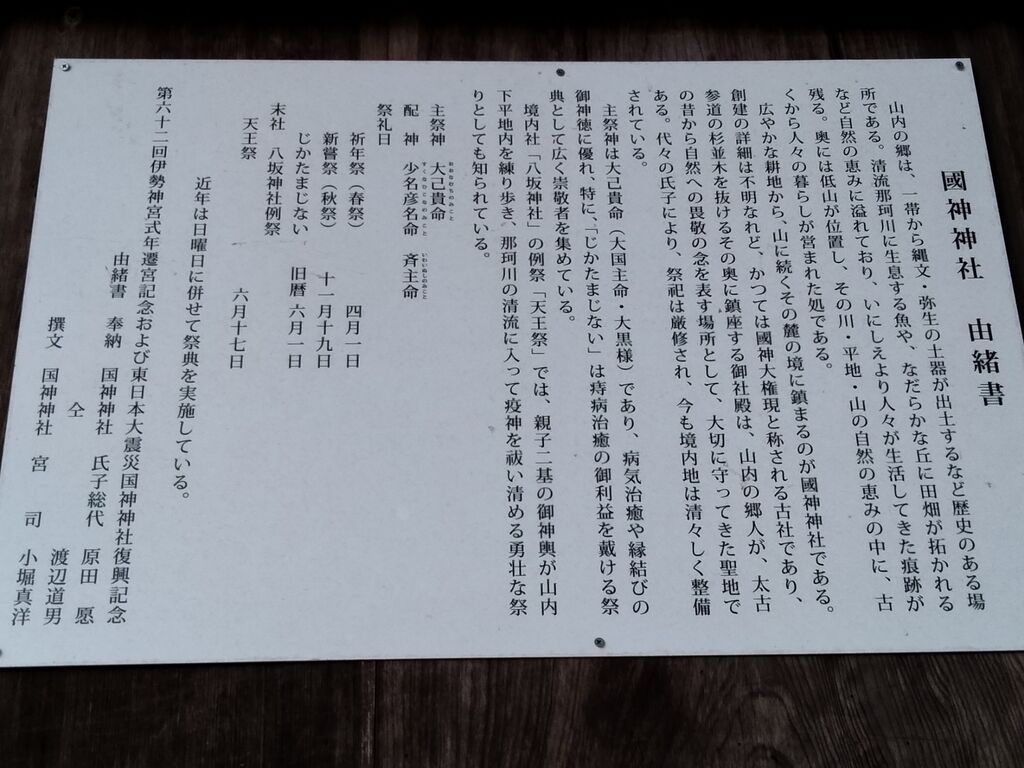 國神神社　由緒書
山内の郷は、一帯から縄文・弥生の土器が出土するなど歴史のある場
所である。清流那珂川に生息する魚や、なだらかな丘に田畑が拓かれる
など自然の恵みに溢れており、いにしえより人々が生活してきた痕跡が
残る。奥には低山が位置し、その川・平地・山の自然の恵みの中に、古
くから人々の暮らしが営まれた処である。
広やかな耕地から、山に続くその麓の境に鎮まるのが國神神社である。
創建の詳細は不明なれど、かつては國神大権現と称される古社であり、
参道の杉並木を抜けるその奥に鎮座する御社殿は、山内の郷人が、太古
の昔から自然への畏敬の念を表す場所として、大切に守ってきた聖地で
ある。代々の氏子により、祭祀は厳修され、今も境内地は清々しく整備
されている。
主祭神は大己貴命（大国主命・大黒様）であり、病気治癒や縁結びの
御神徳に優れ、特に、「じかたまじない」は痔病治癒の御利益を戴ける祭
典として広く崇敬者を集めている。
境内社「八坂神社」の例祭「天王祭」では、親子二基の御神輿が山内
下平地内を練り歩き、那珂川の清流に入って疫神を祓い清める勇壮な祭
りとしても知られている。
主祭神　大己貴命
おおなむちのみこと
配　神　少名彦名命　斉主命
すくなひこなのみこと　いわいぬしのみこと
祭礼日
祈年祭（春祭）　四月一日
新嘗祭（秋祭）　十一月十九日
じかたまじない　旧暦 六月一日
末社　八坂神社例祭
天王祭　六月十七日
近年は日曜日に併せて祭典を実施している。
第六十二回伊勢神宮式年遷宮記念および東日本大震災国神神社復興記念
由緒書　奉納　国神神社　氏子総代　原田　愿
仝　渡辺道男
撰文　国神神社　宮　司　小堀真洋